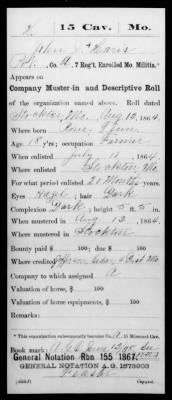 15 Cav. Mo.
John J. Harris
Co. A, 7 Reg't, Enrolled Mo. Militia.*
Appears on
Company Muster-in and Descriptive Roll
of the organization named above. Roll dated
Stockton, Mo. Aug 12, 1864.
Where born
Age 18 y'rs; occupation Farmer
When enlisted July 11, 1864.
Where enlisted Stockton Mo
For what period enlisted 20 Months
Eyes Hazel; hair Dark
Complexion Dark; height 5 ft. 5 in.
When mustered in Aug 12, 1864.
Where mustered in Stockton
Bounty paid $ 100; due $ 100
Where credited
Company to which assigned A
Valuation of horse, $ 100
Valuation of horse equipments, $ 100
Remarks:
* This organization subsequently became Co. A 15 Missouri Cav.
Book mark:
General Notation Rbn. 155 1867.
GENERAL NOTATION A.G. 1373003